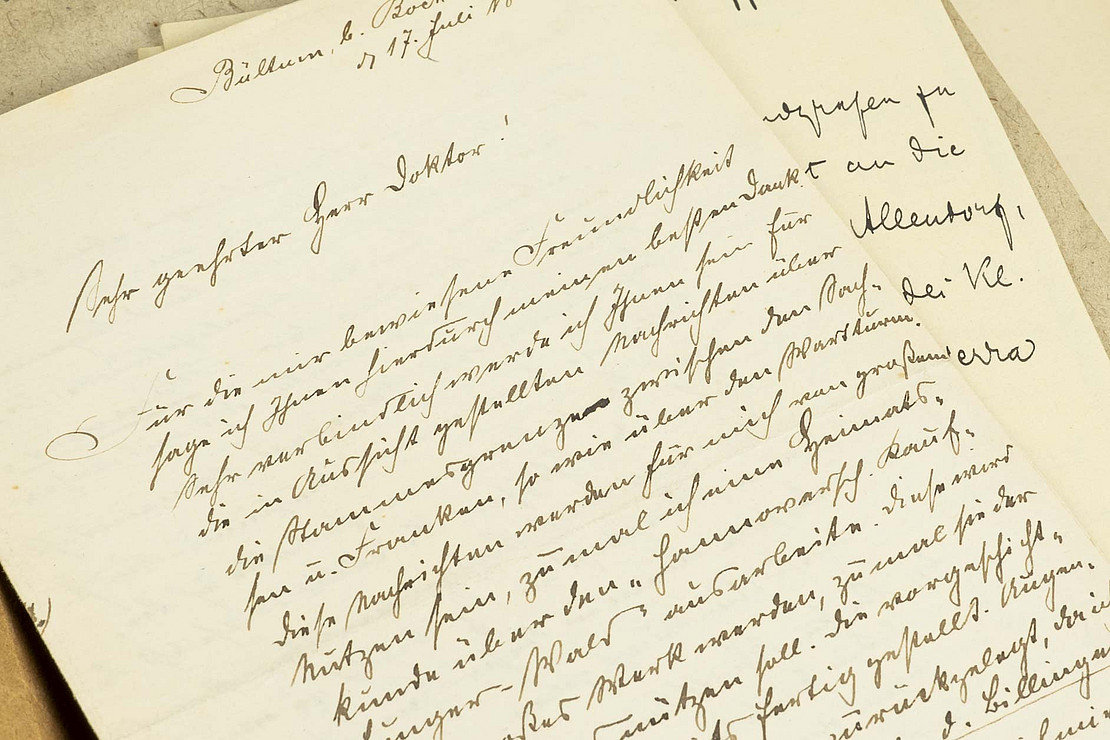 Bültum, b. Bock
d 17. Juli
Sehr geehrter Herr Doktor!
Für die mir bewiesene Freundlichkeit
sage ich Ihnen hierdurch meinen besten Dank.
Sehr verbindlich werde ich Ihnen sein für
die in Aussicht gestellten Nachrichten über
die Stammesgrenze zwischen den Sach-
sen u. Franken, so wie über den Wartturm.
Diese Nachrichten werden für mich von großem
Nutzen sein, zumal ich eine Heimats-
kunde über den "Hannoversch. Kauf-
unger-Wald" ausarbeite. Diese wird
großes Werk werden, zumal sie der
nützen soll. Die vorgeschicht-
fertig gestellt. Augen-
zurückgelegt, da
d. Billinge
t an die
Allendorf,
dei Kl.
erra